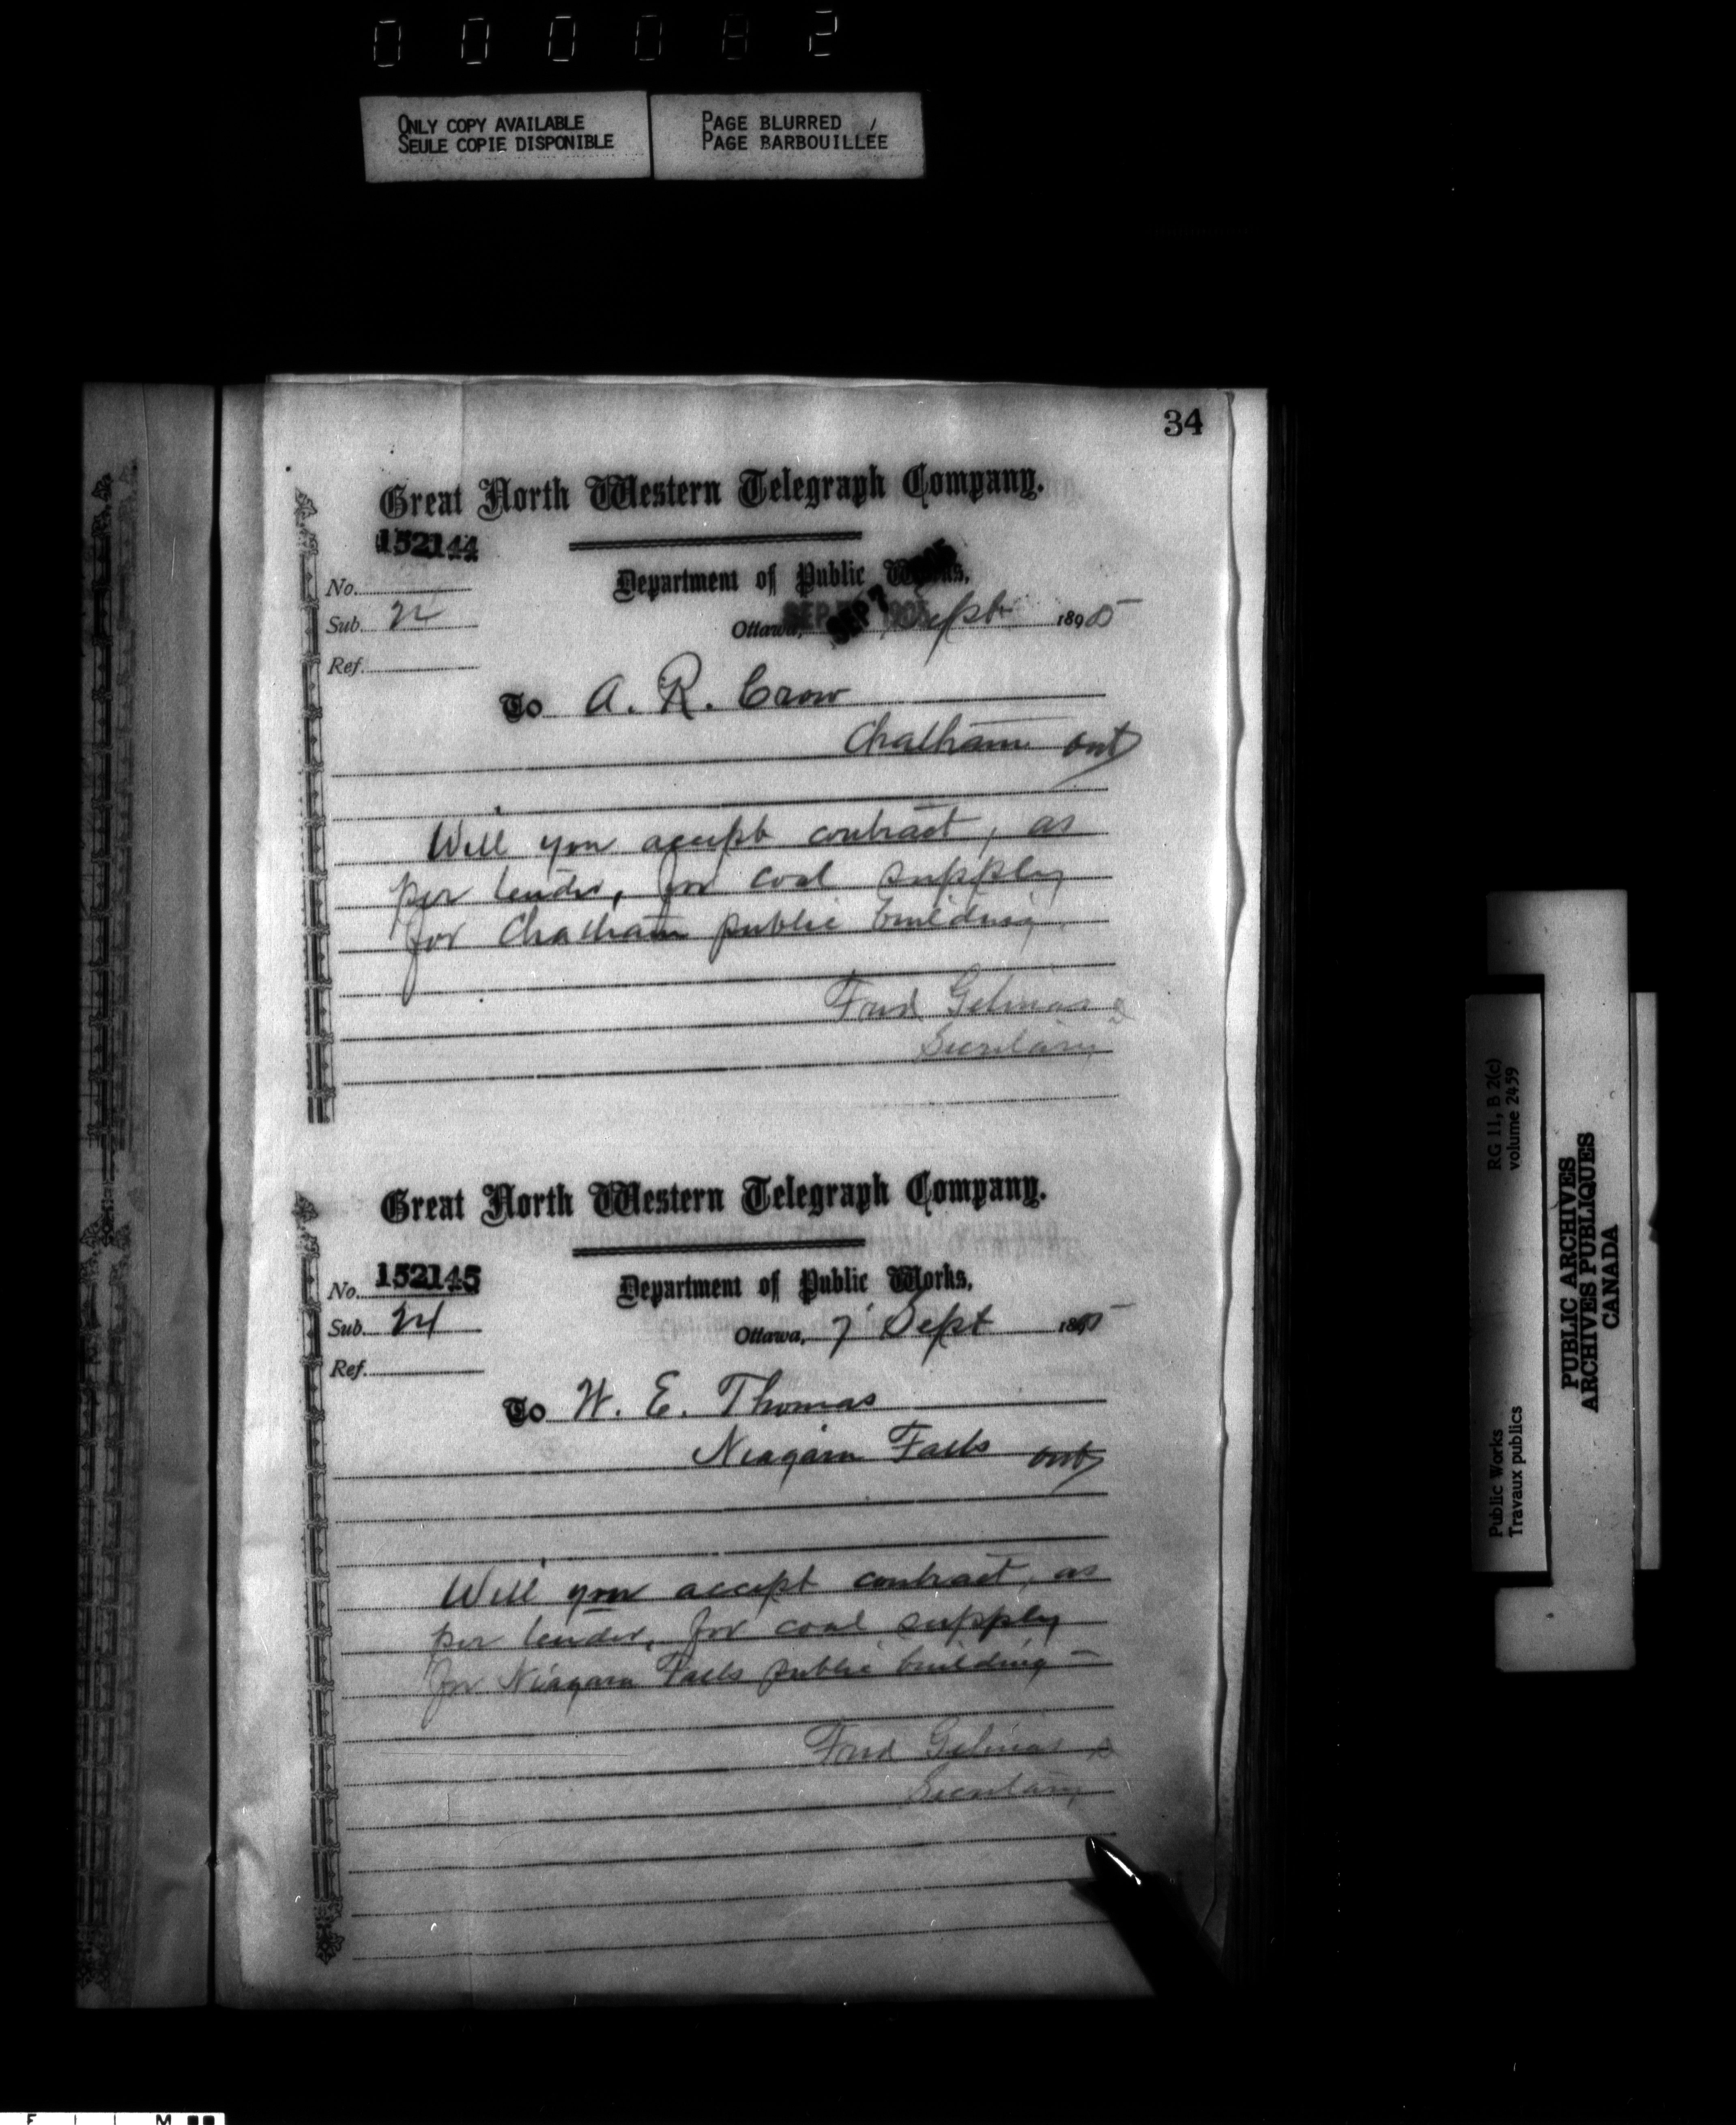 000082
ONLY COPY AVAILABLE
SEULE COPIE DISPONIBLE
PAGE BLURRED
PAGE BARBOUILLÉE
34
Great North Western Telegraph Company.
152144
No.
Department of Public Works,
Sub. 24
Ottawa, SEP 7 1905 Sept 18905
Ref.
To A. R. Crow
Chatham Ont
Will you accept contract, as
per tender, for coal supply
for Chatham public building
Fred Gelinas
Secretary
Great North Western Telegraph Company.
No. 152145
Department of Public Works,
Sub. 24
Ottawa, 7 Sept
Ref.
To W. E. Thomas
Niagara Falls Ont
Will you accept contract, as
per tender, for coal supply
for Niagara Falls public building -
Fred Gelinas
Secretary
RG 11, B 2(c)
volume 2459
Public Works
Travaux publics
PUBLIC ARCHIVES
ARCHIVES PUBLIQUES
CANADA